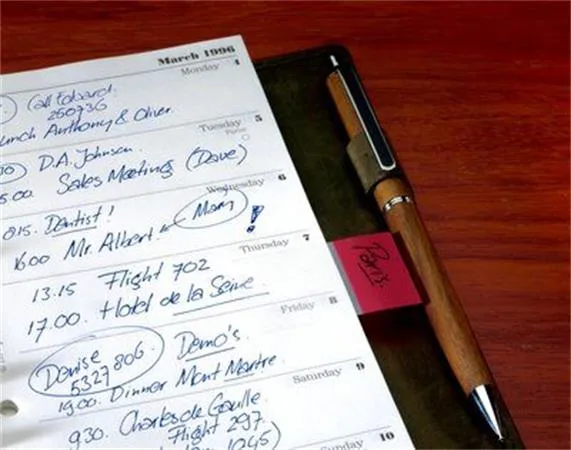 March 1996
Monday 4
Call Edward.
250736
unch Anthony & Oliver.
Tuesday 5
D.A. Johnson.
5.00. Sales Meeting (Dave)
Wednesday 6
815. Dentist!
1600 Mr. Albert. Mary !
Thursday 7
13.15 Flight 702
17.00. Hotel de la Seine
Paris.
Friday 8
Denise
5327806.
Demo's.
1900. Dinner Mont Martre.
Saturday 9
930. Charles de Gaulle.
Flight 297.
1245)
Sunday 10